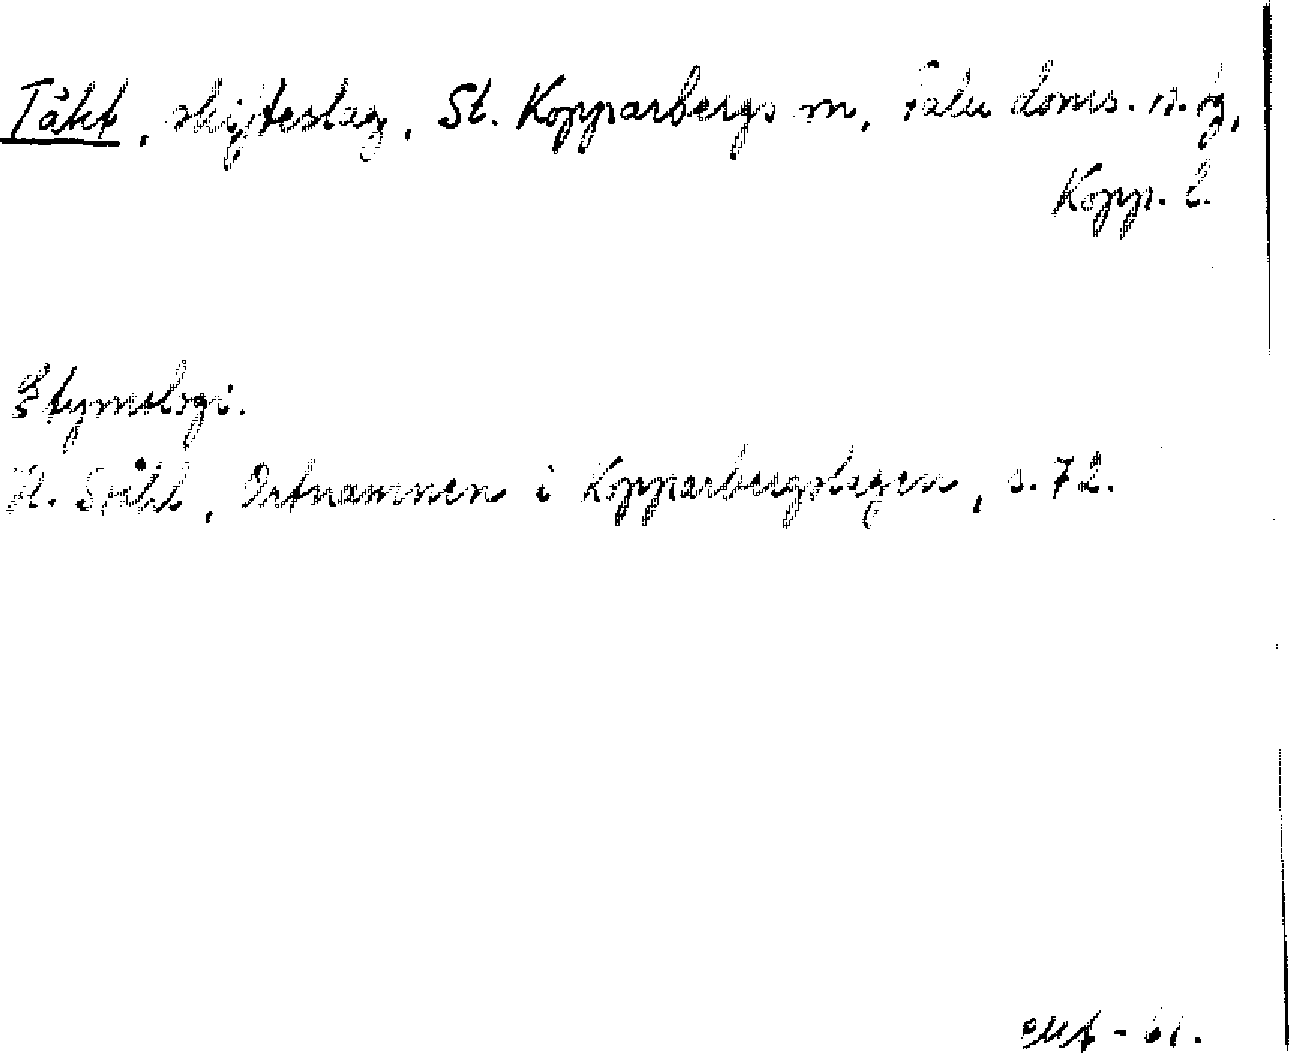 Täkt, skifteslag, St. Kopparbergs sn, Falu doms. n. tg,
Kopp. l.
Etymologi.
H. Ståhl, Ortnamnen i Kopparbergslagen, s. 72.
- 61.